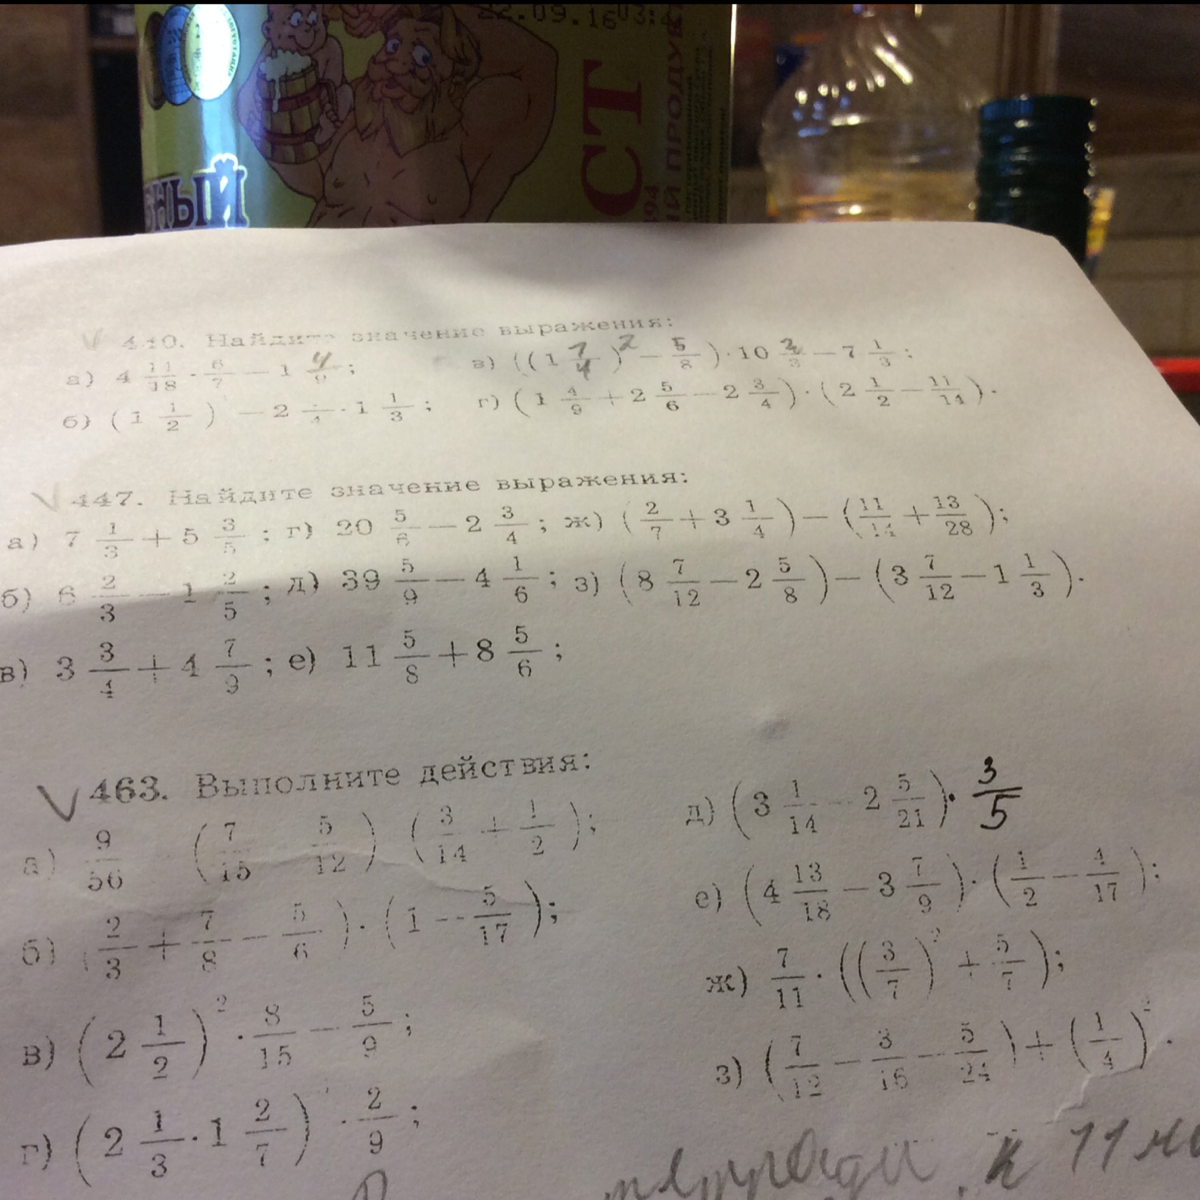 22.09.16 03:
НЫЙ
СТ
Й ПРОДУК
440. Найдите значение выражения:
а) 4 11/18 · 6/7 − 1 4/9; в) ((1 7/4)² − 5/8) · 10 2/3 − 7 1/3;
б) (1 1/2) − 2 /4 · 1 1/3; г) (1 4/9 + 2 5/6 − 2 3/4) · (2 1/2 − 11/14).
447. Найдите значение выражения:
а) 7 1/3 + 5 3/5; г) 20 5/6 − 2 3/4; ж) (2/7 + 3 1/4) − (11/14 + 13/28);
б) 6 2/3 − 1 2/5; д) 39 5/9 − 4 1/6; з) (8 7/12 − 2 5/8) − (3 7/12 − 1 1/3).
в) 3 3/4 + 4 7/9; е) 11 5/8 + 8 5/6;
463. Выполните действия:
а) 9/56 (7/15 5/12) (3/14 + 1/2);
б) (2/3 + 7/8 − 5/6) · (1 − 5/17);
в) (2 1/2)² · 8/15 − 5/9;
г) (2 1/3 · 1 2/7) · 2/9;
д) (3 1/14 − 2 5/21) · 3/5
е) (4 13/18 − 3 7/9) · (1/2 − 4/17);
ж) 7/11 · ((3/7)² + 5/7);
з) (7/12 − 3/16 − 5/24) + (1/4)².
к 11